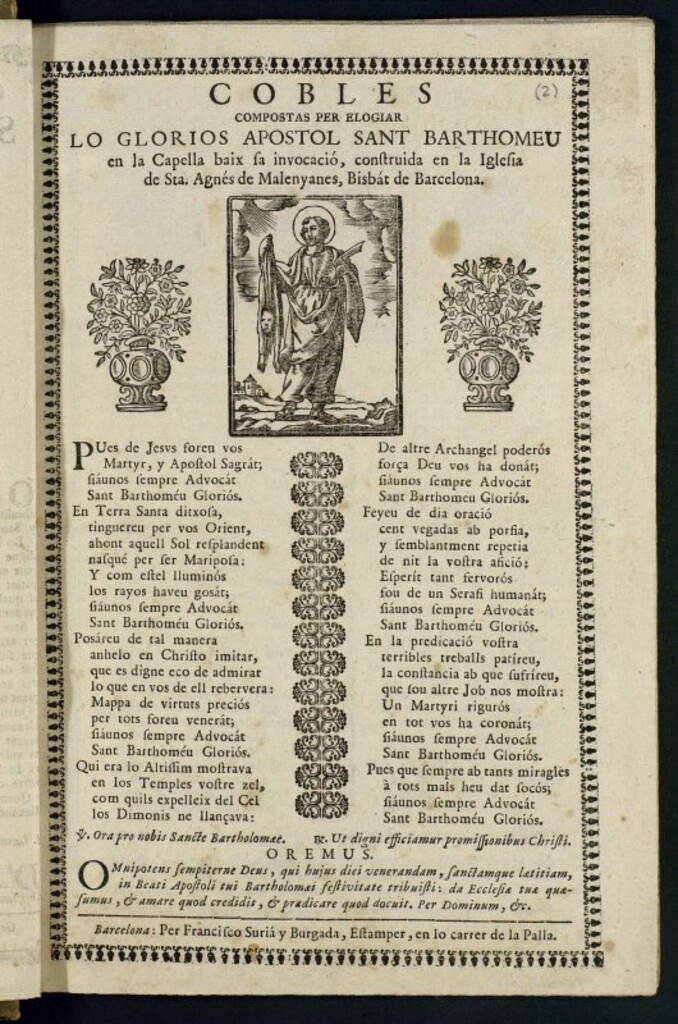 (2)
COBLES
COMPOSTAS PER ELOGIAR
LO GLORIOS APOSTOL SANT BARTHOMEU
en la Capella baix ſa invocació, conſtruida en la Igleſia
de Sta. Agnés de Malenyanes, Bisbát de Barcelona.
PUes de Jesvs foreu vos
Martyr, y Apoſtol Sagrát;
ſiáunos ſempre Advocát
Sant Barthoméu Gloriós.
En Terra Santa ditxoſa,
tinguereu per vos Orient,
ahont aquell Sol reſplandent
naſqué per ſer Maripoſa:
Y com eſtel lluminós
los rayos haveu goſát;
ſiáunos ſempre Advocát
Sant Barthoméu Gloriós.
Posáreu de tal manera
anhelo en Chriſto imitar,
que es digne eco de admirar
lo que en vos de ell rebervera:
Mappa de virtuts preciós
per tots foreu venerát;
ſiáunos ſempre Advocát
Sant Barthoméu Gloriós.
Qui era lo Altiſſim moſtrava
en los Temples voſtre zel,
com quils expelleix del Cel
los Dimonis ne llançava:
De altre Archangel poderós
força Deu vos ha donát;
ſiáunos ſempre Advocát
Sant Barthomeu Gloriós.
Feyeu de dia oració
cent vegadas ab porfia,
y ſemblantment repetia
de nit la voſtra afició:
Eſperit tant fervorós
fou de un Serafi humanát;
ſiáunos ſempre Advocát
Sant Barthoméu Gloriós.
En la predicació voſtra
terribles treballs patíreu,
la conſtancia ab que ſufríreu,
que ſou altre Job nos moſtra:
Un Martyri rigurós
en tot vos ha coronát;
ſiáunos ſempre Advocát
Sant Barthoméu Gloriós.
Pues que ſempre ab tants miragles
à tots mals heu dat ſocós;
ſiáunos ſempre Advocát
Sant Barthoméu Gloriós.
℣. Ora pro nobis Sancte Bartholomæe. ℟. Ut digni efficiamur promiſſionibus Chriſti.
OREMUS.
OMnipotens ſempiterne Deus, qui hujus diei venerandam, ſanctamque lætitiam,
in Beati Apoſtoli tui Bartholomæi feſtivitate tribuiſti: da Eccleſiæ tuæ quæ-
ſumus, & amare quod credidit, & prædicare quod docuit. Per Dominum, &c.
Barcelona: Per Franciſco Suriá y Burgada, Eſtamper, en lo carrer de la Palla.